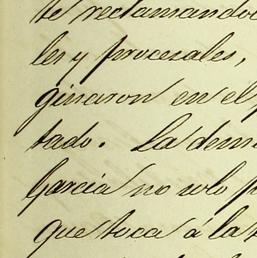 te reclamando
les y procesales,
ginaron en el p
tado. La dem
Garcia no solo p
que toca á la t